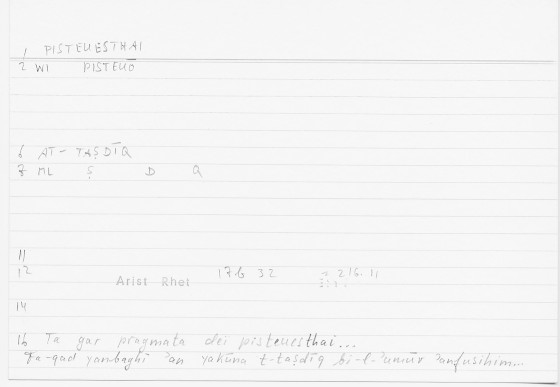 1 PISTEUESTHAI
2 WI PISTEUŌ
6 AT-TAṢDĪQ
8 ML Ṣ D Q
11
12 Arist Rhet 17b 32 216.11
14
16 Ta gar pragmata dei pisteuesthai...
Fa-qad yanbaghī 'an yakūna t-taṣdīq bi-l-'umūr 'anfusihim...